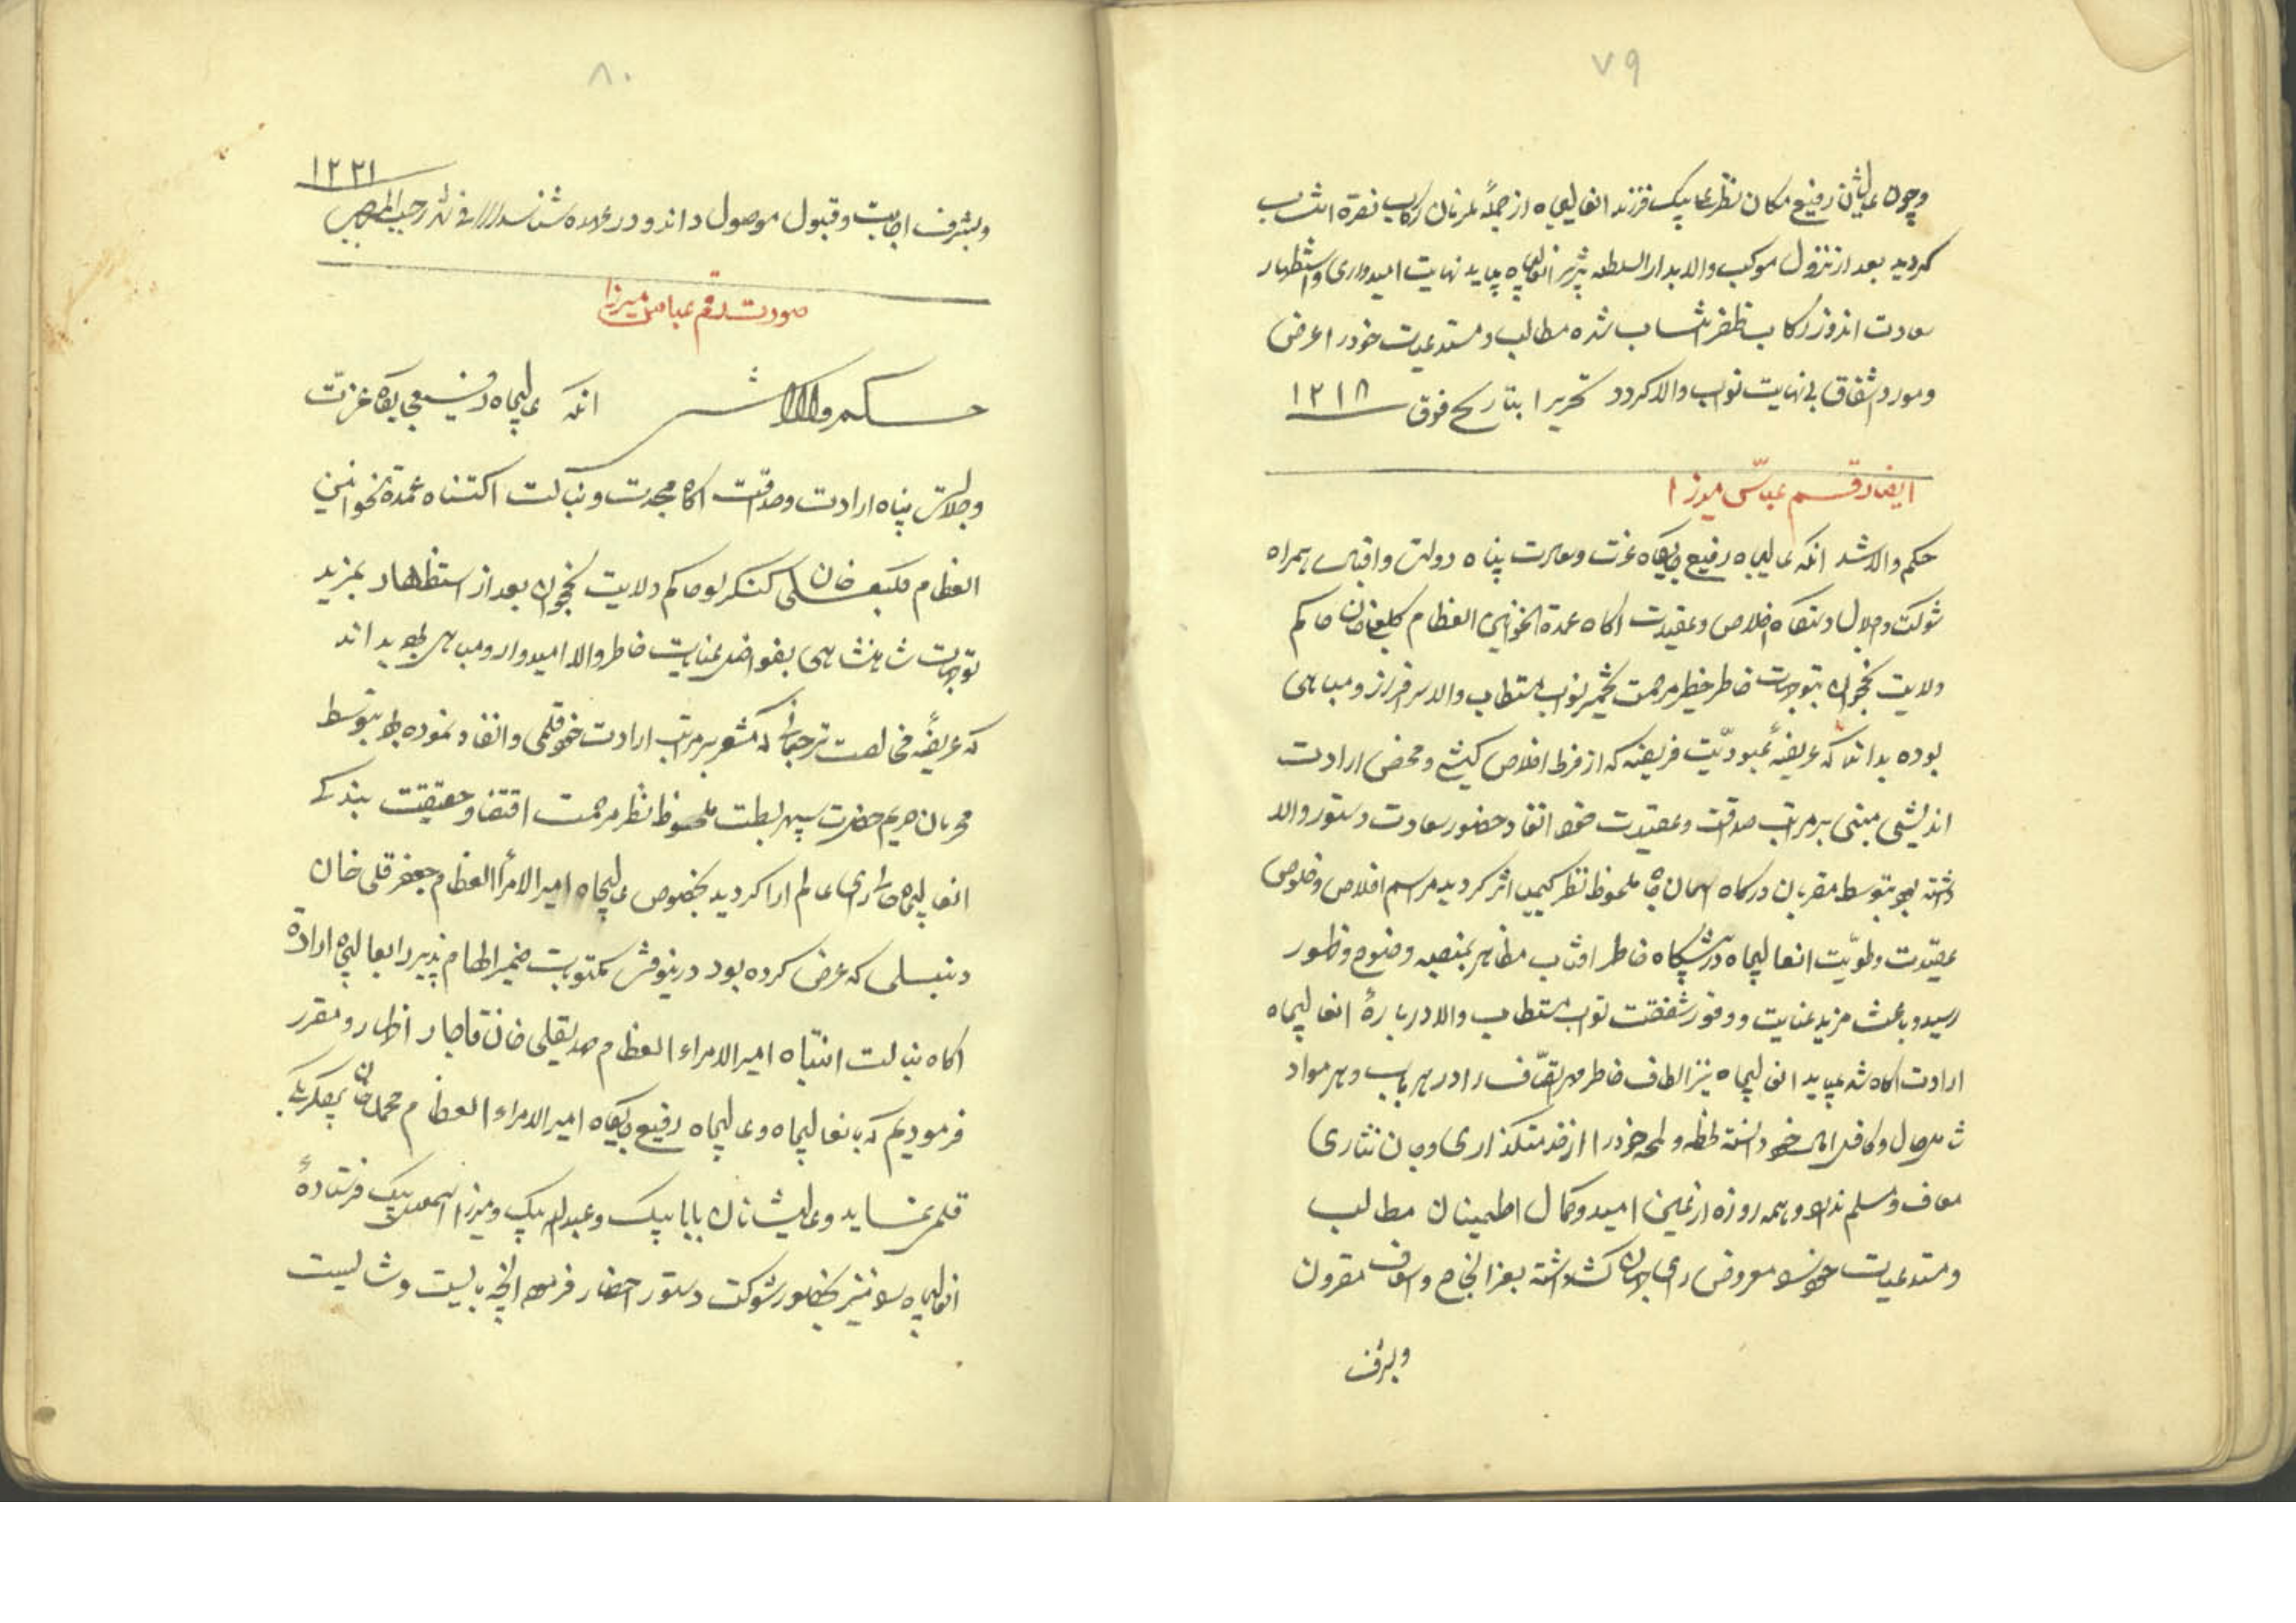 ۷۹
وچون عالیشان رفیع مکان نظر علی بیک فرزند انعالیجاه از جمله ملزمان رکاب نصرة انتساب
کردید بعد از نزول موکب والا بدار السلطنه تبریز انعالیجاه بیاید نهایت امیدواری و استظهار
سعادت اندوز رکاب ظفر انتساب شده مطالب و مستدعیات خود را عرض
و مورد اشفاق بی نهایت نواب والا کردد تحریرا بتاریخ فوق ۱۲۱۸
ایضا رقم عباس میرزا
حکم والا شد انکه عالیجاه رفیع جایکاه عزت و سعادت پناه دولت و اقبال همراه
شوکت و جلال دستکاه اخلاص و عقیدت اکاه عمدة الخوانین العظام کلبعلی خان حاکم
ولایت نخجوان بتوجهات خاطر خطیر مرحمت تخمیر نواب مستطاب والا سرافراز و مباهی
بوده بداند که عریضهٔ عبودیّت فریضه که از فرط اخلاص کیشی و محض ارادت
اندیشی مبنی بر مراتب صداقت و عقیدت خود انفاد حضور سعادت دستور والا
داشته بود بتوسط مقربان درکاه اسمان جاه ملحوظ نظر کیمیا اثر کردید مراسم اخلاص و خلوص
عقیدت و طویّت انعالیجاه در پیشکاه خاطر افتاب مظاهر بمنصهٔ وضوح و ظهور
رسید و باعث مزید عنایت و وفور شفقت نواب مستطاب والا در بارهٔ انعالیجاه
ارادت اکاه شد میباید انعالیجاه نیز الطاف خاطر مهر اتّصاف را در هر باب و هر مواد
شامل حال و کافل امال خود دانسته لحظه و لمحه خود را از خدمتکذاری و جان نثاری
معاف و مسلم ندارد و همه روزه از عین امید و کمال اطمینان مطالب
و مستدعیات خود را معروض رای جهان کشا داشته بعز انجاح و اسعاف مقرون
وبشرف
۸۰
وبشرف اجابت و قبول موصول داند و در عهده شناسد فی شهر رجب المرجب ۱۲۲۱
صورت رقم عباس میرزا
حکم والا شد انکه عالیجاه رفیع جایکاه عزت
و جلالت پناه ارادت و صداقت اکاه مجدت و نبالت اکتناه عمدة الخوانین
العظام کلبعلی خان کنکرلو حاکم ولایت نخجوان بعد از استظهار بمزید
توجهات شاهنشاهی بفواضل عنایت خاطر والا امیدوار و مباهی بوده بداند
که عریضهٔ مخالصت ترجمانی که مشعر بر مراتب ارادت خود قلمی و انفاد نموده بود بتوسط
محرمان حریم حضرت سپهر بسطت ملحوظ نظر مرحمت اقتضا و حقیقت بندکی
انعالیجاه حالی رای عالم ارا کردید بخصوص عالیجاه امیر الامرأ العظام جعفر قلی خان
دنبلی که عرض کرده بود درینوقت مکتوبات ضمیر الهام پذیر را بعالیجاه ارادة
اکاه نبالت انتباه امیر الامراء العظام مهدیقلی خان قاجار اظهار و مقرر
فرمودیم که بانعالیجاه و عالیجاه رفیع جایکاه امیر الامراء العظام محمد خان بیکلربیکی
قلمی نماید و عالیشانان بابا بیک و عبدالله بیک و میرزا اسمعیل بیک فرستادهٔ
انعالیجاه را نیز بحضور شوکت دستور احضار فرموده انچه بایست و شایست